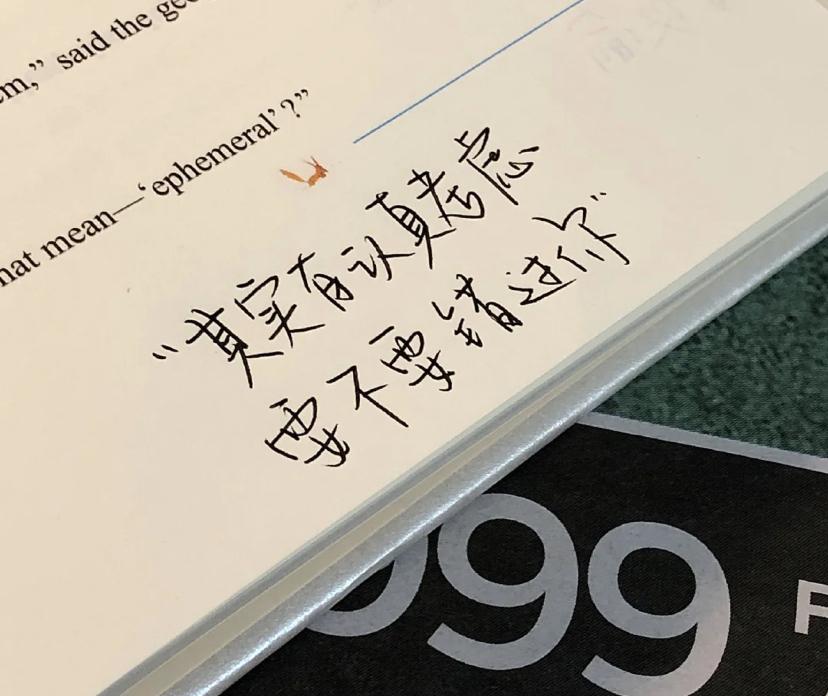 em,” said the ge
hat mean—‘ephemeral’?”
“其实有认真考虑
要不要错过你”
999
F